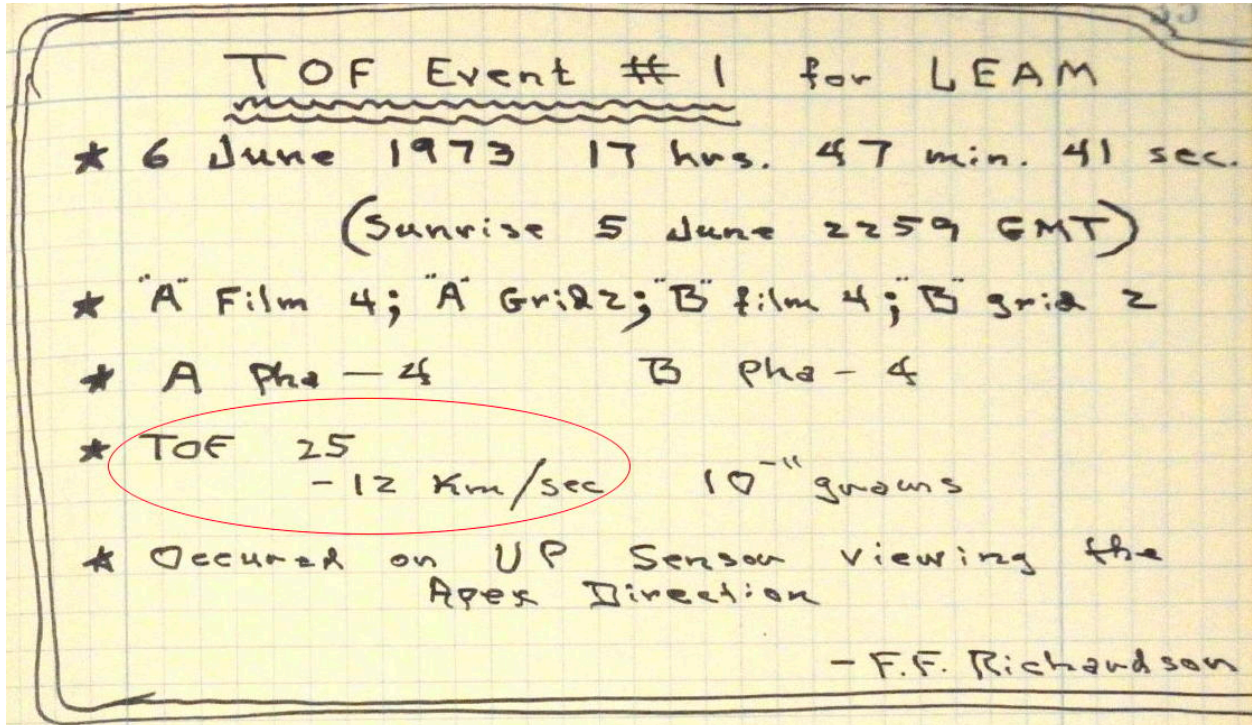 TOF Event # 1 for LEAM
* 6 June 1973 17 hrs. 47 min. 41 sec.
(Sunrise 5 June 2259 GMT)
* "A" Film 4; "A" Grid 2; "B" film 4; "B" grid 2
* A pha - 4 B pha - 4
* TOF 25
-12 Km/sec 10⁻¹¹ grams
* Occured on UP Sensor viewing the
Apex Direction
- F.F. Richardson